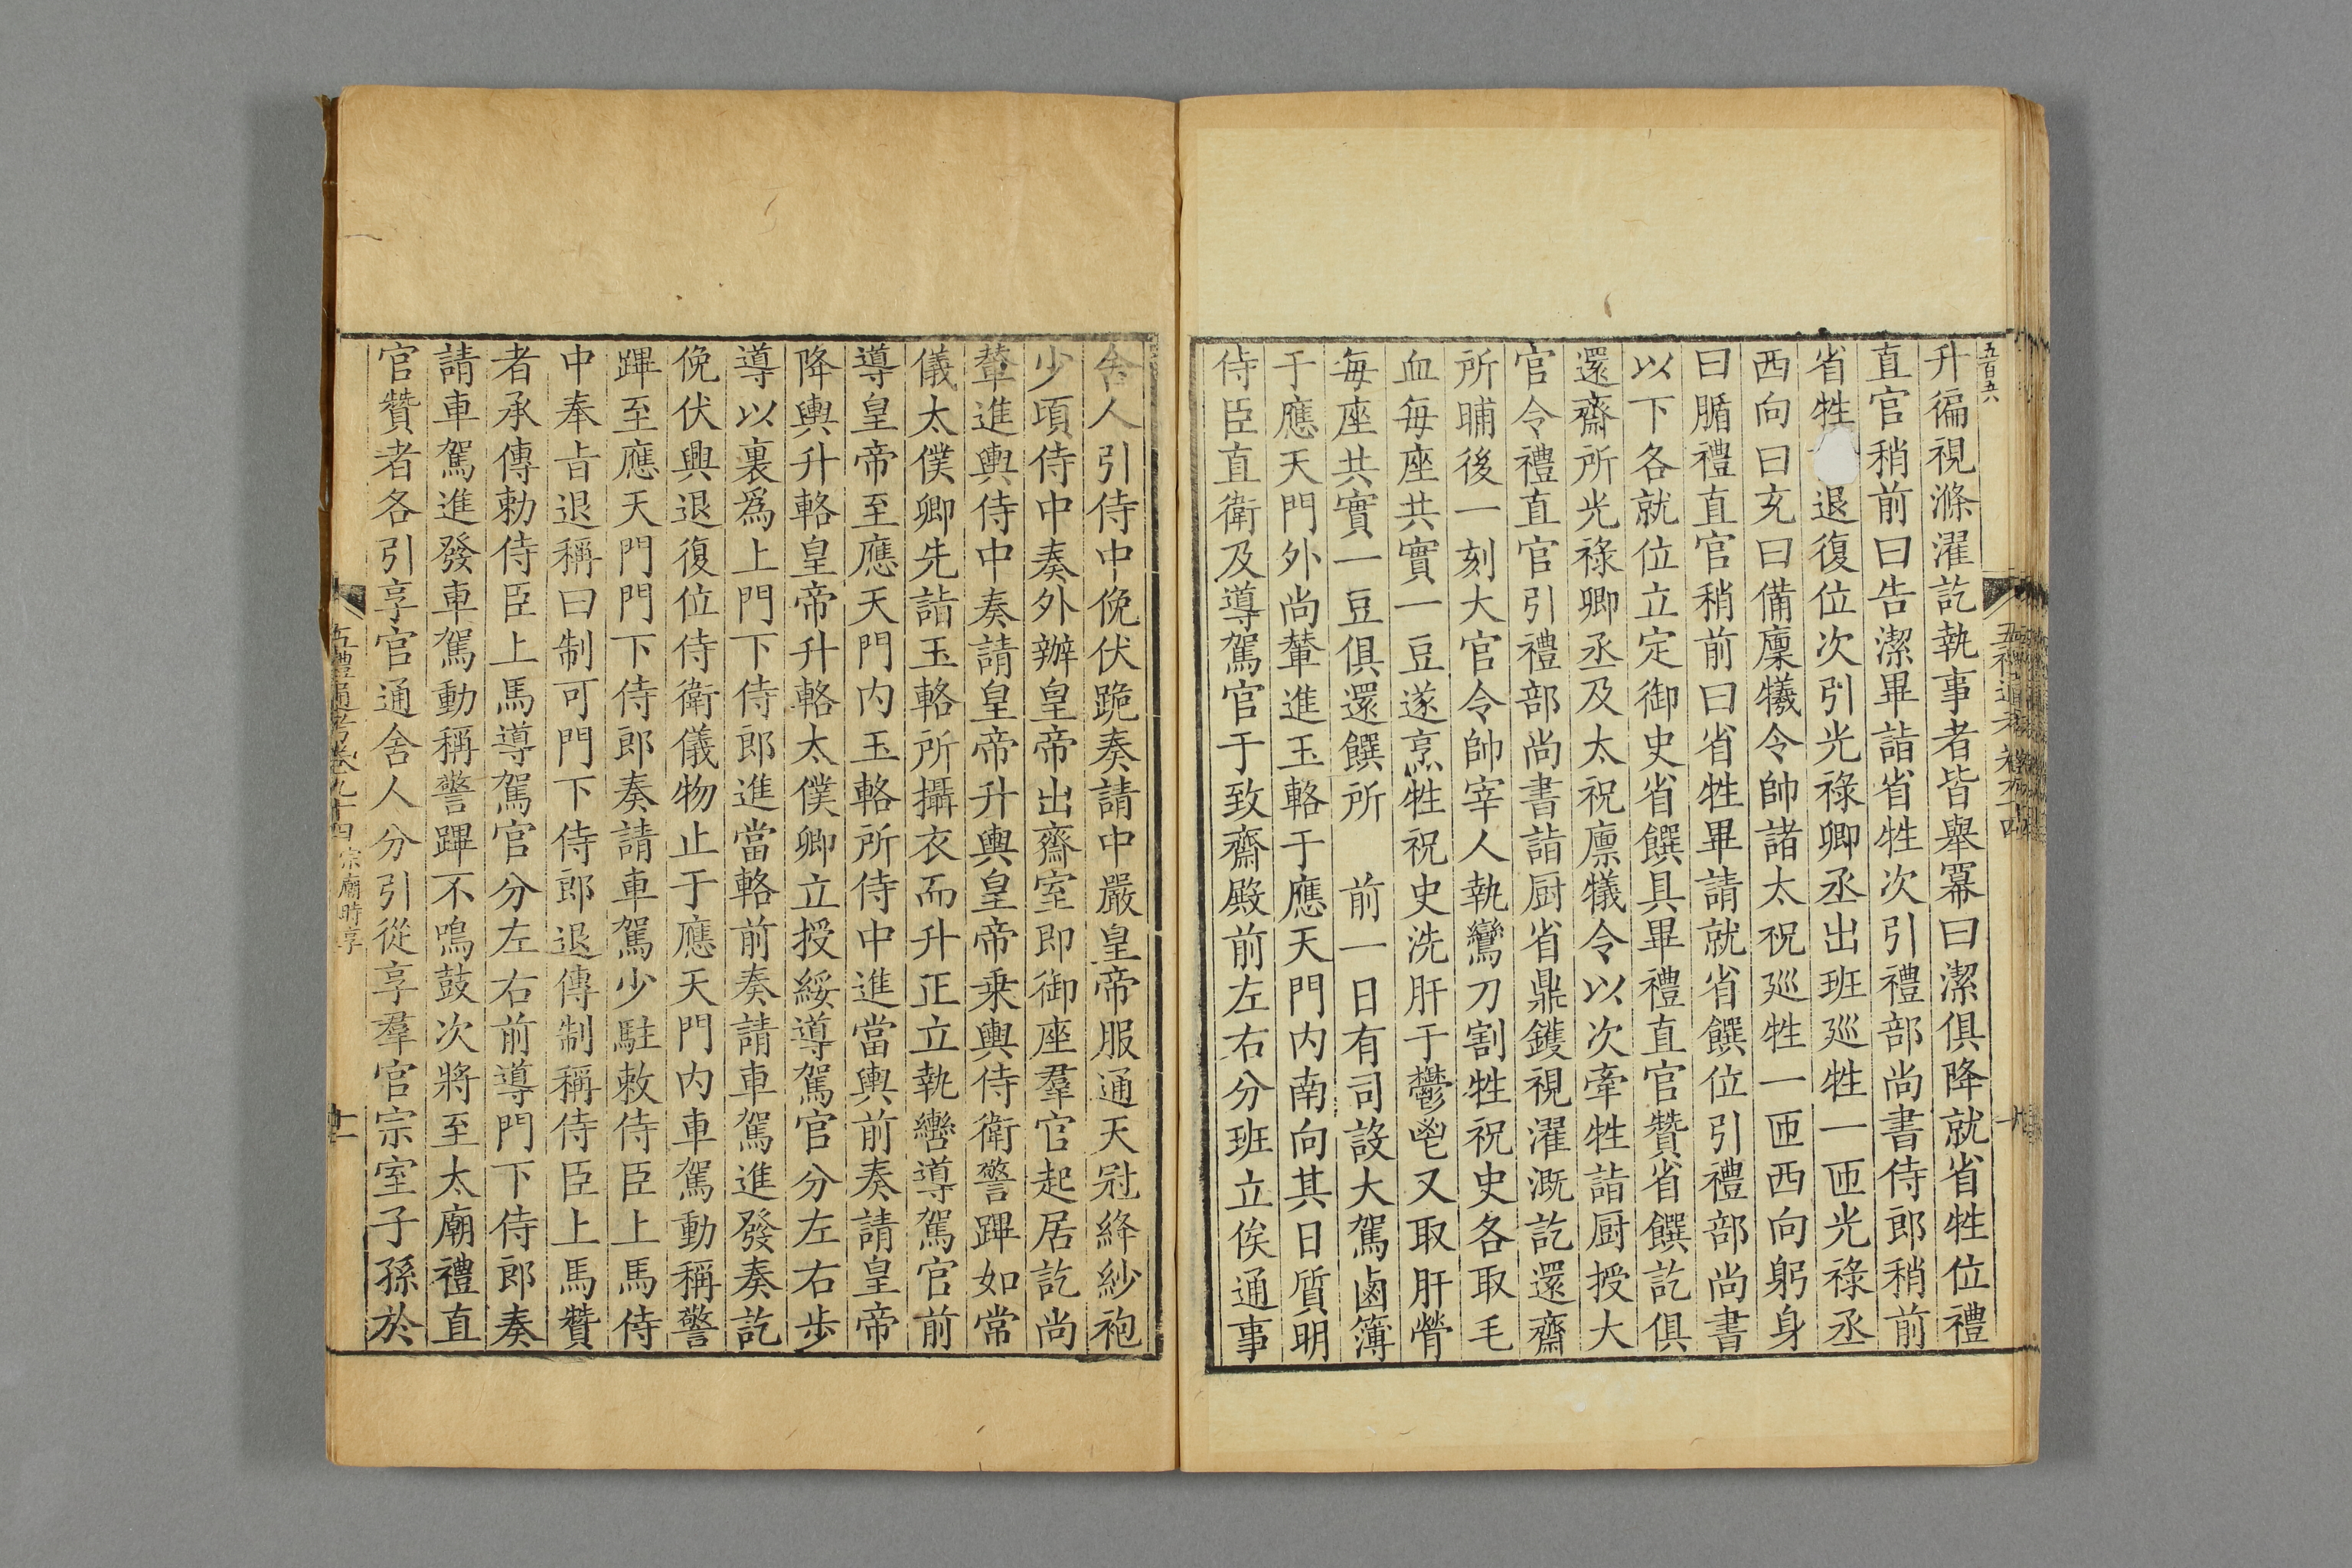 五百五六
升徧視滌濯訖執事者皆舉冪曰潔俱降就省牲位禮
直官稍前曰告潔畢詣省牲次引禮部尚書侍郎稍前
省牲退復位次引光祿卿丞出班廵牲一匝光祿丞
西向曰充曰備廩犧令帥諸太祝廵牲一匝西向躬身
曰腯禮直官稍前曰省牲畢請就省饌位引禮部尚書
以下各就位立定御史省饌具畢禮直官贊省饌訖俱
還齋所光祿卿丞及太祝廪犧令以次牽牲詣厨授大
官令禮直官引禮部尚書詣厨省鼎鑊視濯溉訖還齋
所晡後一刻大官令帥宰人執鸞刀割牲祝史各取毛
血每座共實一豆遂烹牲祝史洗肝于鬱鬯又取肝膋
每座共實一豆俱還饌所　前一日有司設大駕鹵簿
于應天門外尚輦進玉輅于應天門内南向其日質明
侍臣直衛及導駕官于致齋殿前左右分班立俟通事
舍人引侍中俛伏跪奏請中嚴皇帝服通天冠絳紗袍
少頃侍中奏外辦皇帝出齋室即御座羣官起居訖尚
輦進輿侍中奏請皇帝升輿皇帝乗輿侍衛警蹕如常
儀太僕卿先詣玉輅所攝衣而升正立執轡導駕官前
導皇帝至應天門内玉輅所侍中進當輿前奏請皇帝
降輿升輅皇帝升輅太僕卿立授綏導駕官分左右步
導以裏爲上門下侍郎進當輅前奏請車駕進發奏訖
俛伏興退復位侍衛儀物止于應天門内車駕動稱警
蹕至應天門門下侍郎奏請車駕少駐敕侍臣上馬侍
中奉旨退稱曰制可門下侍郎退傳制稱侍臣上馬贊
者承傳勅侍臣上馬導駕官分左右前導門下侍郎奏
請車駕進發車駕動稱警蹕不鳴鼓次將至太廟禮直
官贊者各引享官通舍人分引從享羣官宗室子孫於
五禮通考卷九十四宗廟時享
十一